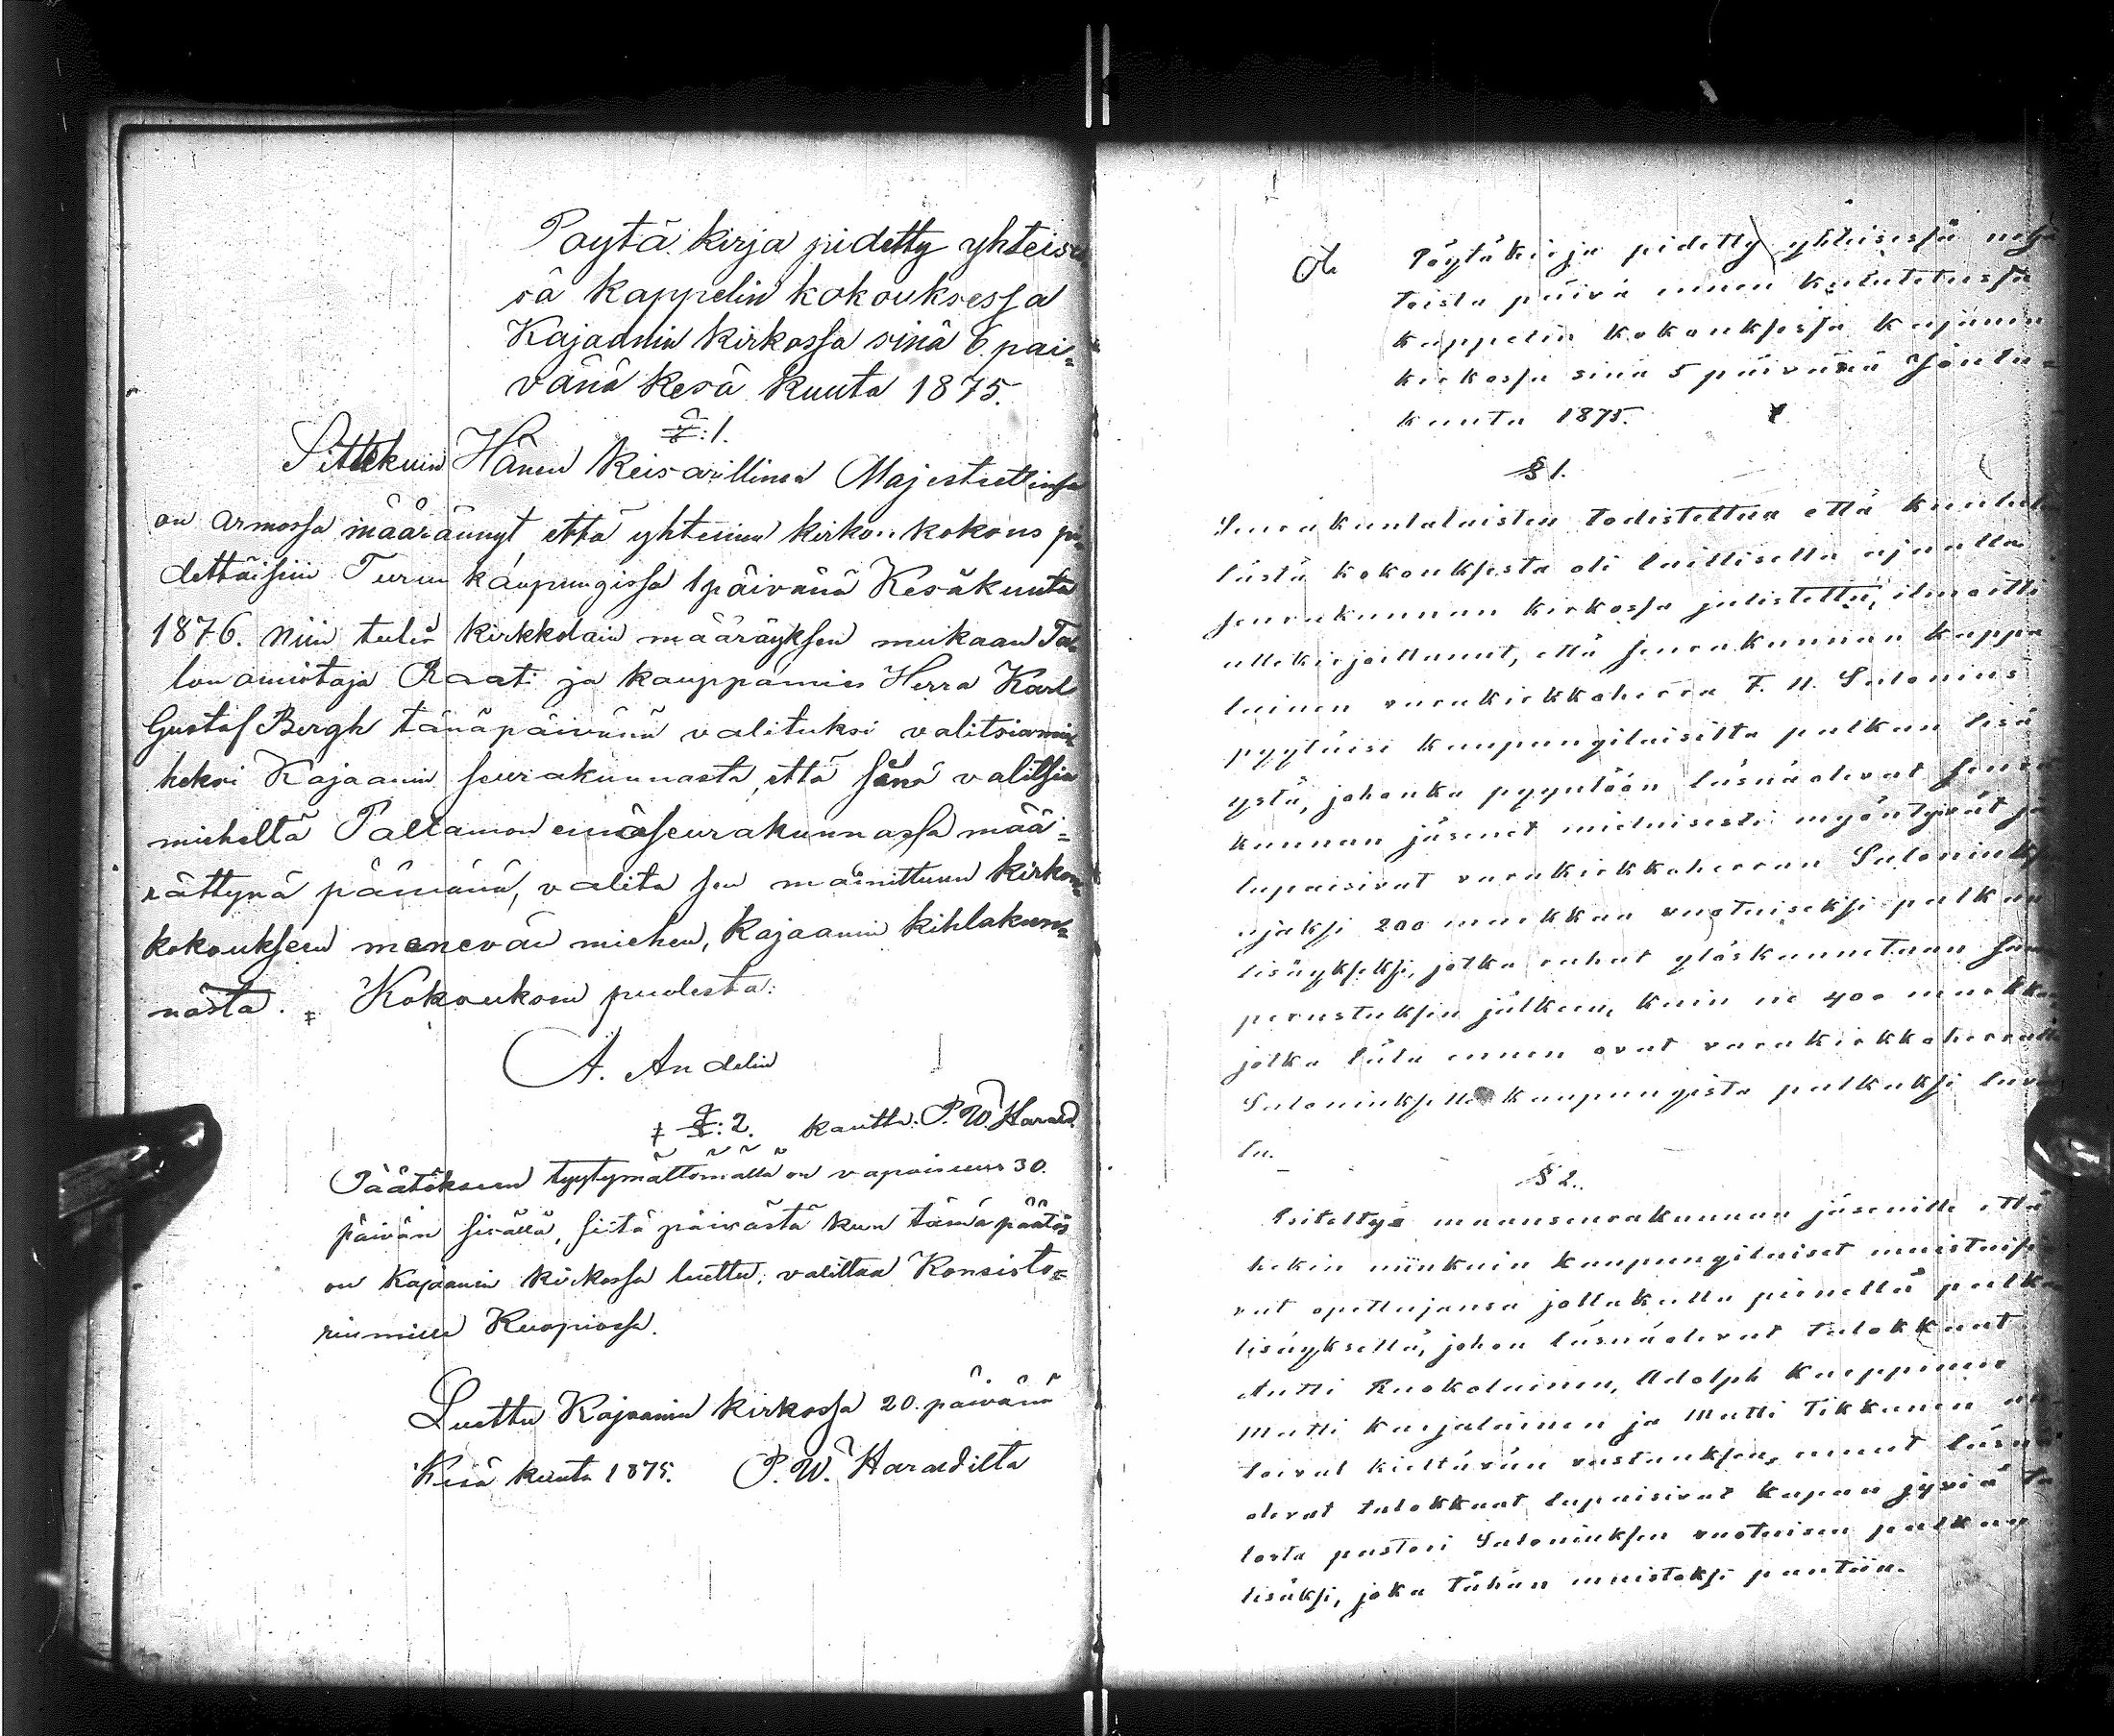 Poytä kirja pidetty yhteises
sä kappelin kokouksessa
Kajaanin kirkossa sinä 6. päi=
vänä Kesä kuuta 1875.
§: 1.
Sittekuin Hänen Keisarillinen Majesteetinsa
on armossa määrännyt että yhteinen kirkon kokous pi=
dettäisiin Turun kaupungissa 1 päivänä Kesäkuuta
1876. niin tuli kirkkolain määräyksen mukaan Ta=
lon omistaja Raati ja kauppamies Herra Karl
Gustaf Bergh tänäpäivänä valituksi valitsiamie
heksi Kajaanin seurakunnasta, että valitsia
mieheltä Paltamon emäseurakunnassa mää=
rättynä päivänä, valita sen mainittuun kirkon=
kokoukseen menevän miehen, Kajaanin kihlakun=
nasta. ‡ Kokouksen puolesta:
A. Andelin
‡ §: 2. kautta. P. W. Harald.
Päätökseen tyytymättömällä on vapaisuus 30.
päivän sisällä, siitä päivästä kun tämä päätös
on Kajaanin kirkossa luettu, valittaa Konsisto=
riumiin Kuopiossa.
Luettu Kajaanin kirkossa 20. päivänä
Kesä kuuta 1875. P. W. Haraldilta
Pöytäkirja pidetty yhteisessä neljä
toista päivä ennen kuulutetussa
kappelin kokouksessa Kajanin
kirkossa sinä 5 päivänä Joulu=
kuuta 1875.
§ 1.
Seurakuntalaisten todistettua että kuulutu
tästä kokouksesta oli laillisella ajalla
seurakunnan kirkossa julistettu, ilmoitti
allekirjoittanut, että seurakunnan kappa
lainen varakirkkoherra F. H. Salonius
pyytäisi kaupungilaisilta palkan lisä
ystä, johonka pyyntöön läsnäolevat seura
kunnan jäsenet mieluisesti myöntyivät ja
lupaisivat varakirkkoherran Saloniuksen
ajaksi 200 markkaa vuotuiseksi palkan
lisäykseksi, jotka rahat yloskannetaan saman
perustuksen jälkeen, kuin ne 400 markkaa
jotka tätä ennen ovat varakirkkoherralle
Saloniukselle kaupungista palkaksi luva
tu.
§ 2.
Esiteltyä maanseurakunnan jäsenille että
hekin niinkuin kaupungilaiset muistaisi
vat opettajansa jollakulla pienellä palkan
lisäyksellä, johon läsnäolevat talokkaat
Antti Ruokolainen, Adolph Karppinen
Matti Karjalainen ja Matti Tikkanen an
toivat kieltävän vastauksen, muut läsnä
olevat talokkaat lupaisivat kapan jyviä ta
losta pastori Saloniuksen vuotuisen palkan
lisäksi, joka tähän muistoksi pantiin.